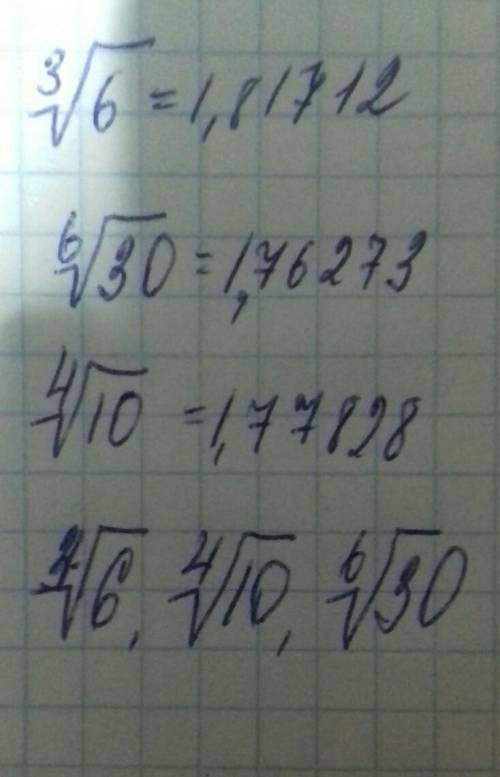 ∛6 = 1,81712
⁶√30 = 1,76273
∜10 = 1,77828
∛6, ∜10, ⁶√30